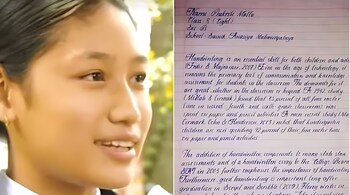 Name: Prakriti Malla
Class: 8 (Eight)
School: Sainik Awasiya Mahavidyalaya
Handwriting is an essential skill for both children and adults
(Feder & Majnemer, 2007). Even in the age of technology, it
remains the primary tool of communication and knowledge
assessment for students in the classroom. The demands for it
are great, whether in the classroom or beyond. A 1992 study
(McHale & Cermak) found that 85 percent of all fine motor
time in second- and fourth-grade classrooms was
spent on paper and pencil activities. A more recent study (Marr,
Cermak, Cohn & Henderson, 2003) noted that kindergarten
children are now spending 42 percent of their fine motor time
on paper and pencil activities.
The addition of handwritten components to many state
assessments and of a handwritten essay to the College Board
SAT in 2005 further emphasize the importance of handwriting.
Furthermore, good handwriting is important long after
graduation